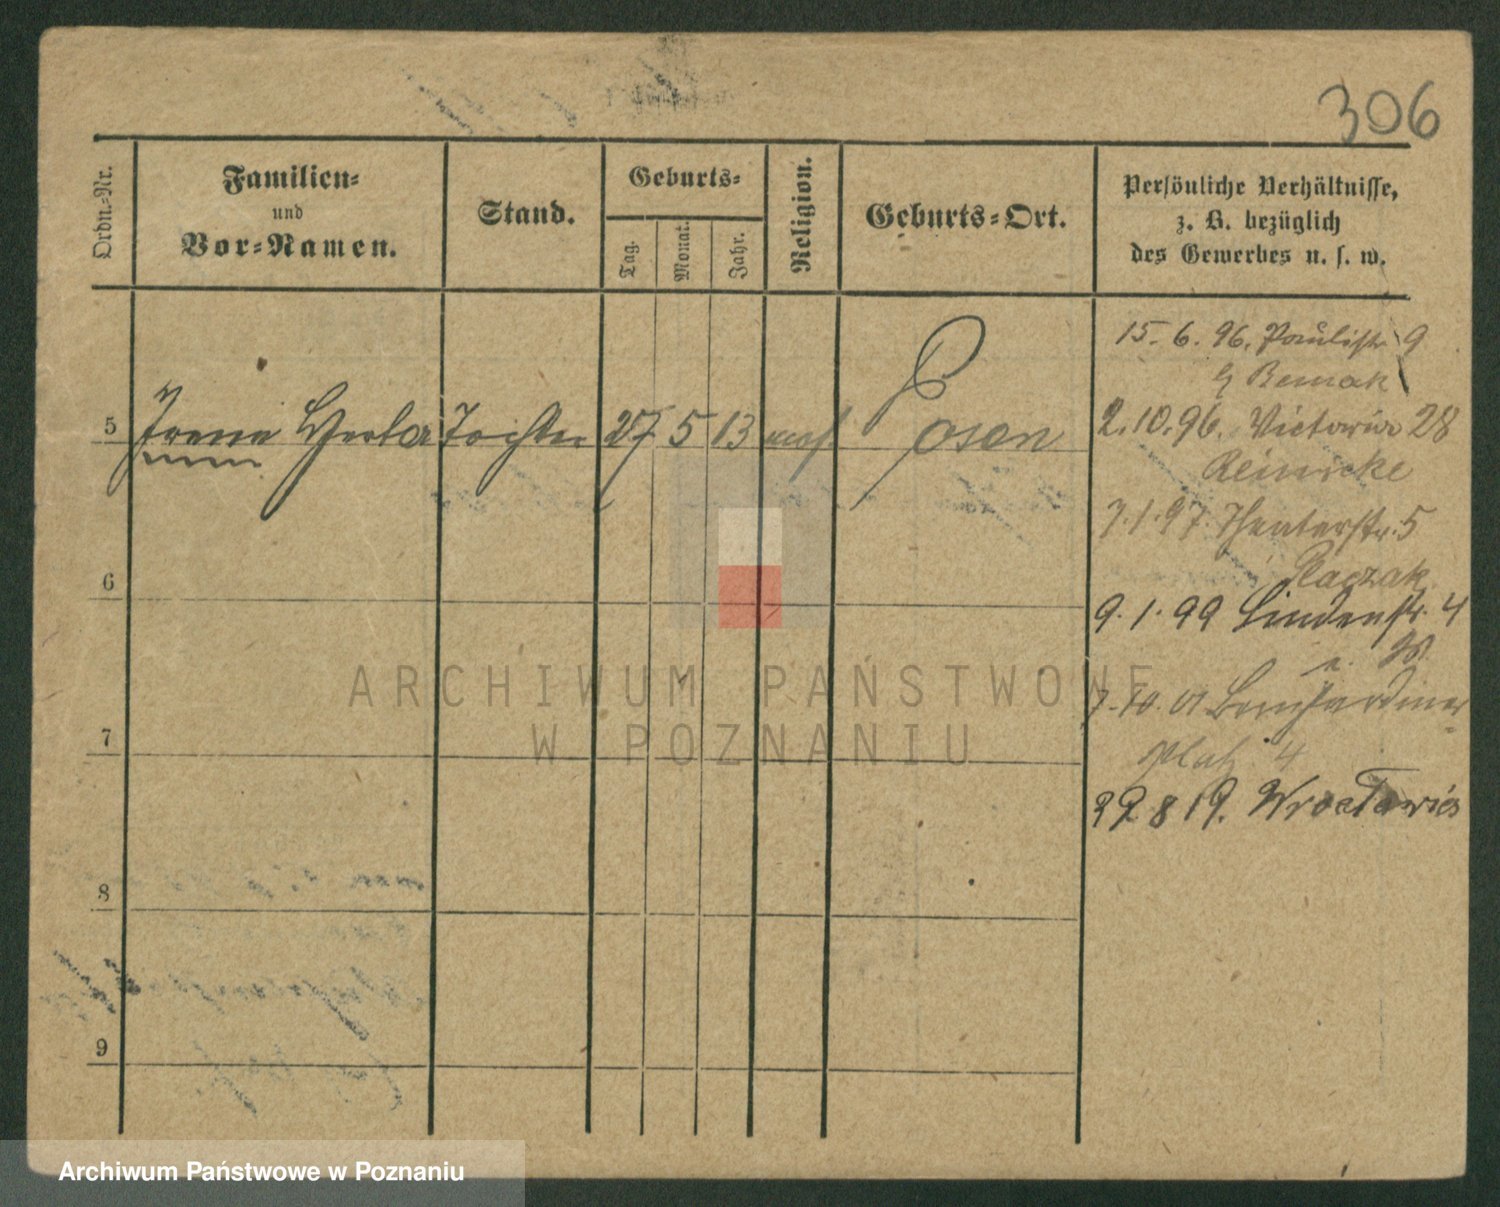 306
Ordn.-Nr.
Familien-
und
Vor-Namen.
Stand.
Geburts-
Tag.
Monat.
Jahr.
Religion.
Geburts-Ort.
Persönliche Verhältnisse,
z. B. bezüglich
des Gewerbes u. s. w.
5 Irene Tochter 27 5 13 Posen
6
7
8
9
15. 6. 96. Paulistr 9
2. 10. 96. Victoria 28
Reinicke
7. 1. 97. Theaterstr. 5
Raczak
9. 1. 99 Lindenstr. 4
7. 10. 01 Bernhardiner
platz 4
29 8 19.
ARCHIWUM PAŃSTWOWE
W POZNANIU
Archiwum Państwowe w Poznaniu